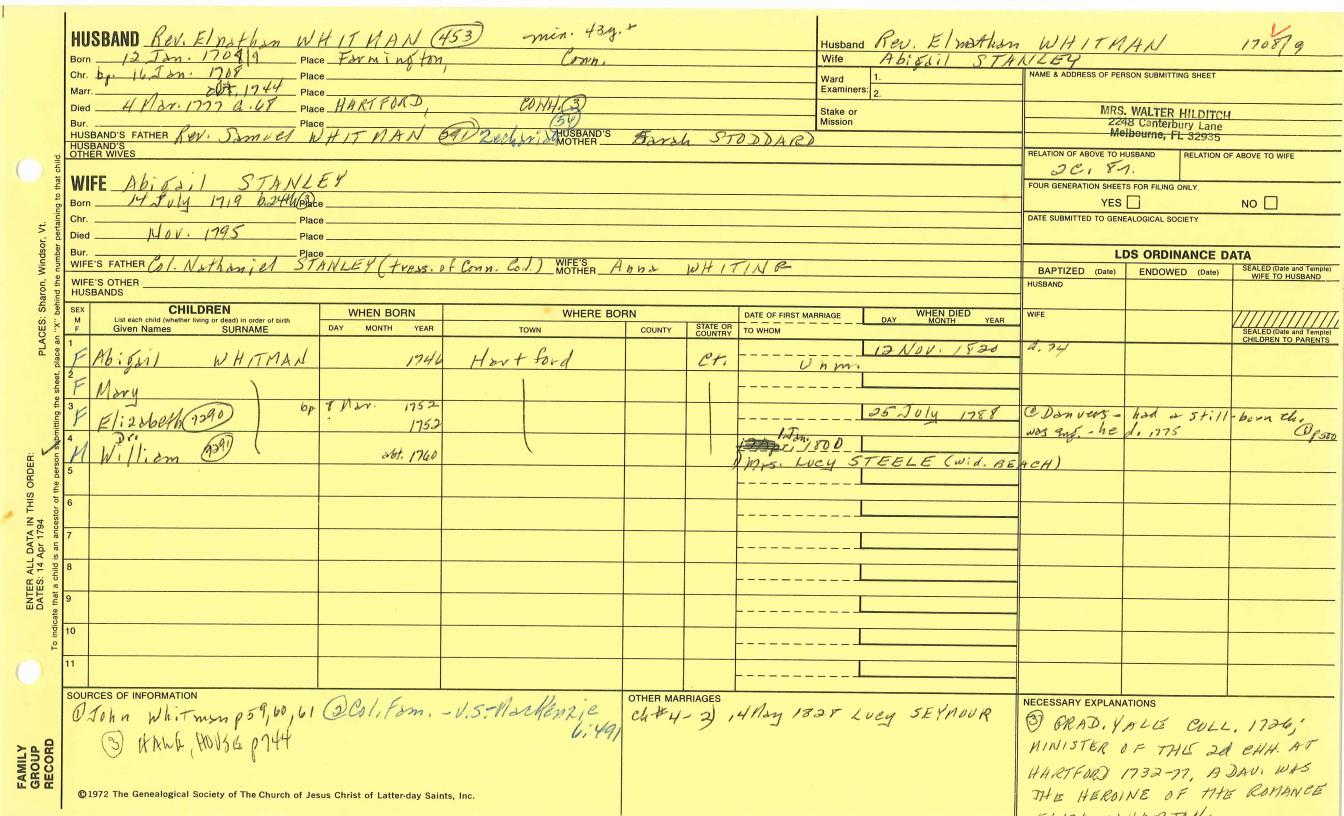 HUSBAND Rev. Elnathan WHITMAN 453 min. 43y.
Born 12 Jan. 1708/9 Place Farmington, Conn.
Chr. bp. 16 Jan. 1708 Place
Marr. 1744 Place
Died 4 Mar. 1777 a. 68 Place HARTFORD, CONN. 3
Bur. Place
HUSBAND'S FATHER Rev. Samuel WHITMAN Zechariah HUSBAND'S MOTHER Sarah STODDARD
HUSBAND'S OTHER WIVES
WIFE Abigail STANLEY
Born 14 July 1719 Place
Chr. Place
Died Nov. 1795 Place
Bur. Place
WIFE'S FATHER Col. Nathaniel STANLEY (treas. of Conn. Col.) WIFE'S MOTHER Anna WHITING
WIFE'S OTHER HUSBANDS
Husband Rev. Elnathan WHITMAN 1708/9
Wife Abigail STANLEY
Ward Examiners: 1.
2.
Stake or Mission
NAME & ADDRESS OF PERSON SUBMITTING SHEET
MRS. WALTER HILDITCH
2248 Canterbury Lane
Melbourne, FL 32935
RELATION OF ABOVE TO HUSBAND RELATION OF ABOVE TO WIFE
2C. 8r.
FOUR GENERATION SHEETS FOR FILING ONLY
YES NO
DATE SUBMITTED TO GENEALOGICAL SOCIETY
LDS ORDINANCE DATA
BAPTIZED (Date) ENDOWED (Date) SEALED (Date and Temple) WIFE TO HUSBAND
HUSBAND
WIFE
SEALED (Date and Temple) CHILDREN TO PARENTS
SEX M F
CHILDREN
List each child (whether living or dead) in order of birth
Given Names SURNAME
WHEN BORN
DAY MONTH YEAR
WHERE BORN
TOWN COUNTY STATE OR COUNTRY
DATE OF FIRST MARRIAGE
TO WHOM
WHEN DIED
DAY MONTH YEAR
1 F Abigail WHITMAN 1746 Hartford Ct. Unm. 12 Nov. 1820 a. 74
2 F Mary
3 F Elizabeth 7290 bp 8 Mar. 1752 25 July 1788 @ Danvers - had a still-born ch.
1752 was eng. - he d. 1775 p 500
4 M Dr. William 7291 abt. 1760 1 Jan. 1800
1) Mrs. LUCY STEELE (wid. BEACH)
5
6
7
8
9
10
11
SOURCES OF INFORMATION
① John Whitman p 59, 60, 61 ② Col. Fam. - U.S. - MacKenzie
6:491
③ HAWE, HOUSE p 744
©1972 The Genealogical Society of The Church of Jesus Christ of Latter-day Saints, Inc.
OTHER MARRIAGES
ch #4 - 2) , 4 May 1828 LUCY SEYMOUR
NECESSARY EXPLANATIONS
③ GRAD. YALE COLL. 1726;
MINISTER OF THE 2d CHH. AT
HARTFORD 1732-77, A DAU. WAS
THE HEROINE OF THE ROMANCE
PLACES: Sharon, Windsor, Vt.
ENTER ALL DATA IN THIS ORDER:
DATES: 14 Apr 1794
To indicate that a child is an ancestor of the person submitting the sheet, place an "X" behind the number pertaining to that child.
FAMILY GROUP RECORD